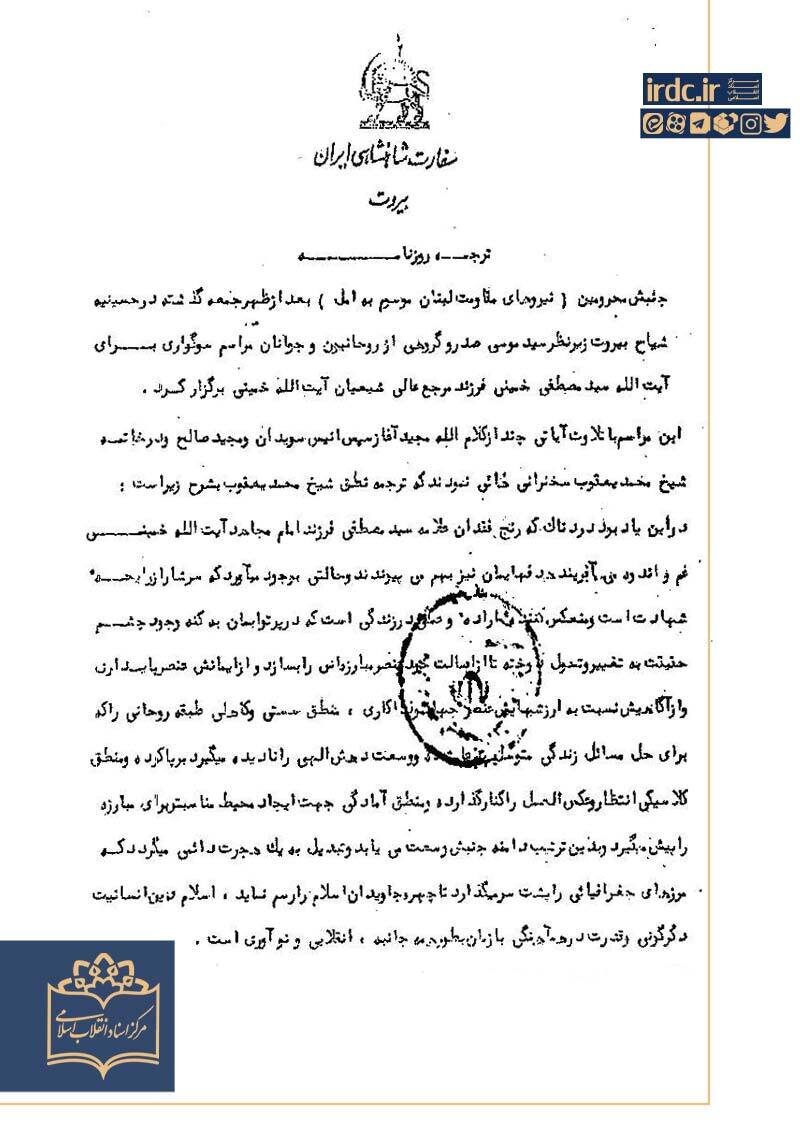 irdc.ir
مرکز
اسناد
انقلاب
اسلامی
سفارت شاهنشاهی ایران
بیروت
ترجمه روزنامه
جنبش محرومین ( نیروهای مقاومت لبنان موسوم به امل ) بعد از ظهر جمعه گذشته در حسینیه
شیاح بیروت زیر نظر سید موسی صدر و گروهی از روحانیون و جوانان مراسم سوگواری برای
آیت الله سید مصطفی خمینی فرزند مرجع عالی شیعیان آیت الله خمینی برگزار کرد .
این مراسم با تلاوت آیاتی چند از کلام الله مجید آغاز سپس انیس سویدان و مجید صالح و در خاتمه
شیخ محمد یعقوب سخنرانی هائی نمودند که ترجمه نطق شیخ محمد یعقوب بشرح زیر است :
در این یادبود دردناک که رنج فقدان علامه سید مصطفی فرزند امام مجاهد آیت الله خمینی
غم و اندوه می آفریند هدفهایمان نیز بهم می پیوندند و حالتی بوجود میآورد که سرشار از رایحه
شهادت است و منعکس کننده اراده و زندگی است که در پرتو ایمان به کنه وجود چشم
حقیقت به تغییر و تحول دوخته تا از اصالت خود عنصر مبارزه اش را بسازد و از ایمانش عنصر پایداری
و از آگاهیش نسبت به ارزشهایش عنصر جهاد و فداکاری ، منطق سستی و کاهلی طبقه روحانی را که
برای حل مسائل زندگی متوسل به شده و وسعت دهش الهی را نادیده میگیرد بر پا کرده و منطق
کلاسیکی انتظار و عکس العمل را کنار گذارده و منطق آمادگی جهت ایجاد محیط مناسبتر برای مبارزه
را پیش میگیرد و بدین ترتیب دامنه جنبش وسعت می یابد و تبدیل به یک هجرت دائمی میگردد که
مرزهای جغرافیائی را پشت سر میگذارد تا چهره جاویدان اسلام را رسم نماید ، اسلام دین انسانیت
دگرگونی و قدرت در هم آهنگی با زمان بطور همه جانبه ، انقلابی و نو آوری است .
مرکز اسناد انقلاب اسلامی